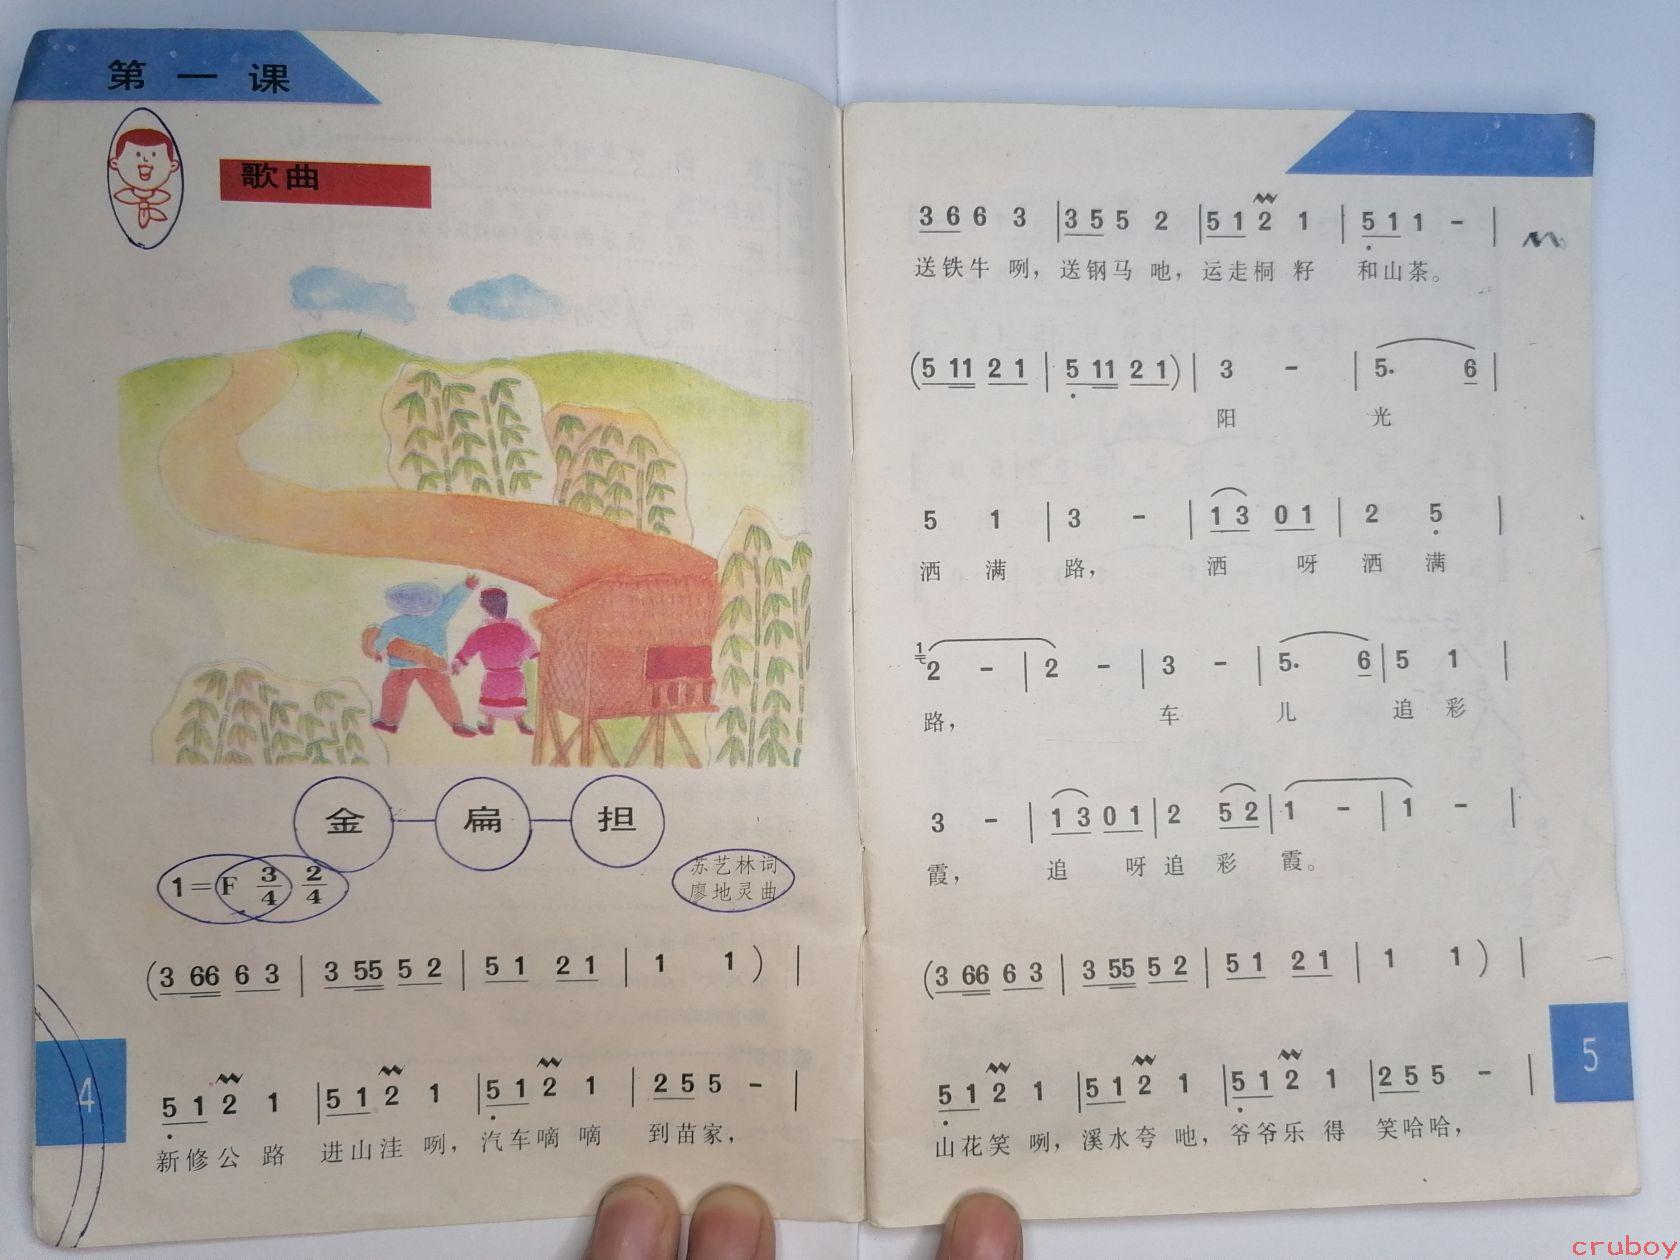 第一课
歌曲
金扁担
1=F 3/4 2/4
苏艺林词
廖地灵曲
(3 66 6 3 | 3 55 5 2 | 5 1 2 1 | 1 1 ) |
5 1 2 1 | 5 1 2 1 | 5 1 2 1 | 2 5 5 - |
新修公路 进山洼咧，汽车嘀嘀 到苗家，
4
3 6 6 3 | 3 5 5 2 | 5 1 2 1 | 5 1 1 - |
送铁牛咧，送钢马吔，运走桐籽 和山茶。
(5 11 2 1 | 5 11 2 1) | 3 - | 5. 6 |
阳 光
5 1 | 3 - | 1 3 0 1 | 2 5 |
洒满路，洒呀洒满
1 2 - | 2 - | 3 - | 5. 6 | 5 1 |
路，车儿追彩
3 - | 1 3 0 1 | 2 5 2 | 1 - | 1 - |
霞，追呀追彩霞。
(3 66 6 3 | 3 55 5 2 | 5 1 2 1 | 1 1 ) |
5 1 2 1 | 5 1 2 1 | 5 1 2 1 | 2 5 5 - |
山花笑咧，溪水夸吔，爷爷乐得 笑哈哈，
5
cruboy